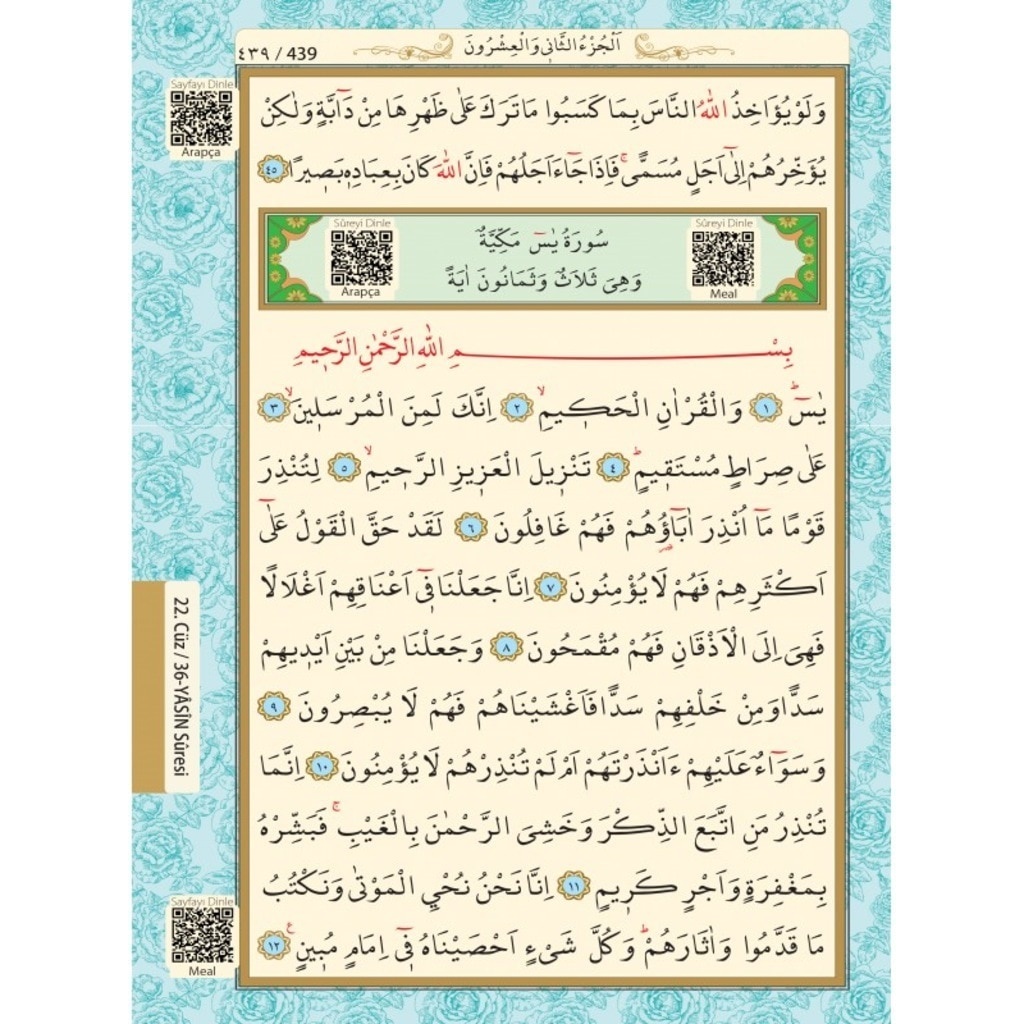 ٤٣٩ / 439
اَلْجُزْءُ الثَّانِي وَالْعِشْرُونَ
Sayfayı Dinle
Arapça
وَلَوْ يُؤَاخِذُ اللّٰهُ النَّاسَ بِمَا كَسَبُوا مَا تَرَكَ عَلٰى ظَهْرِهَا مِنْ دَٓابَّةٍ وَلٰكِنْ
يُؤَخِّرُهُمْ اِلٰٓى اَجَلٍ مُسَمًّىۚ فَاِذَا جَٓاءَ اَجَلُهُمْ فَاِنَّ اللّٰهَ كَانَ بِعِبَادِهٖ بَصٖيرًا ٤٥
Sûreyi Dinle
Arapça
سُورَةُ يٰسٓ مَكِّيَّةٌ
وَهِىَ ثَلَاثٌ وَثَمَانُونَ اٰيَةً
Sûreyi Dinle
Meal
بِسْمِ اللّٰهِ الرَّحْمٰنِ الرَّحٖيمِ
يٰسٓۜ ١ وَالْقُرْاٰنِ الْحَكٖيمِۙ ٢ اِنَّكَ لَمِنَ الْمُرْسَلٖينَۙ ٣
عَلٰى صِرَاطٍ مُسْتَقٖيمٍۜ ٤ تَنْزٖيلَ الْعَزٖيزِ الرَّحٖيمِۙ ٥ لِتُنْذِرَ
قَوْمًا مَٓا اُنْذِرَ اٰبَٓاؤُ۬هُمْ فَهُمْ غَافِلُونَ ٦ لَقَدْ حَقَّ الْقَوْلُ عَلٰٓى
اَكْثَرِهِمْ فَهُمْ لَا يُؤْمِنُونَ ٧ اِنَّا جَعَلْنَا فٖٓى اَعْنَاقِهِمْ اَغْلَالًا
فَهِىَ اِلَى الْاَذْقَانِ فَهُمْ مُقْمَحُونَ ٨ وَجَعَلْنَا مِنْ بَيْنِ اَيْدٖيهِمْ
سَدًّا وَمِنْ خَلْفِهِمْ سَدًّا فَاَغْشَيْنَاهُمْ فَهُمْ لَا يُبْصِرُونَ ٩
وَسَوَٓاءٌ عَلَيْهِمْ ءَاَنْذَرْتَهُمْ اَمْ لَمْ تُنْذِرْهُمْ لَا يُؤْمِنُونَ ١٠ اِنَّمَا
تُنْذِرُ مَنِ اتَّبَعَ الذِّكْرَ وَخَشِىَ الرَّحْمٰنَ بِالْغَيْبِۚ فَبَشِّرْهُ
بِمَغْفِرَةٍ وَاَجْرٍ كَرٖيمٍ ١١ اِنَّا نَحْنُ نُحْيِ الْمَوْتٰى وَنَكْتُبُ
مَا قَدَّمُوا وَاٰثَارَهُمْۜ وَكُلَّ شَىْءٍ اَحْصَيْنَاهُ فٖٓى اِمَامٍ مُبٖينٍ ١٢
22. Cüz / 36-YÂSÎN Sûresi
Sayfayı Dinle
Meal